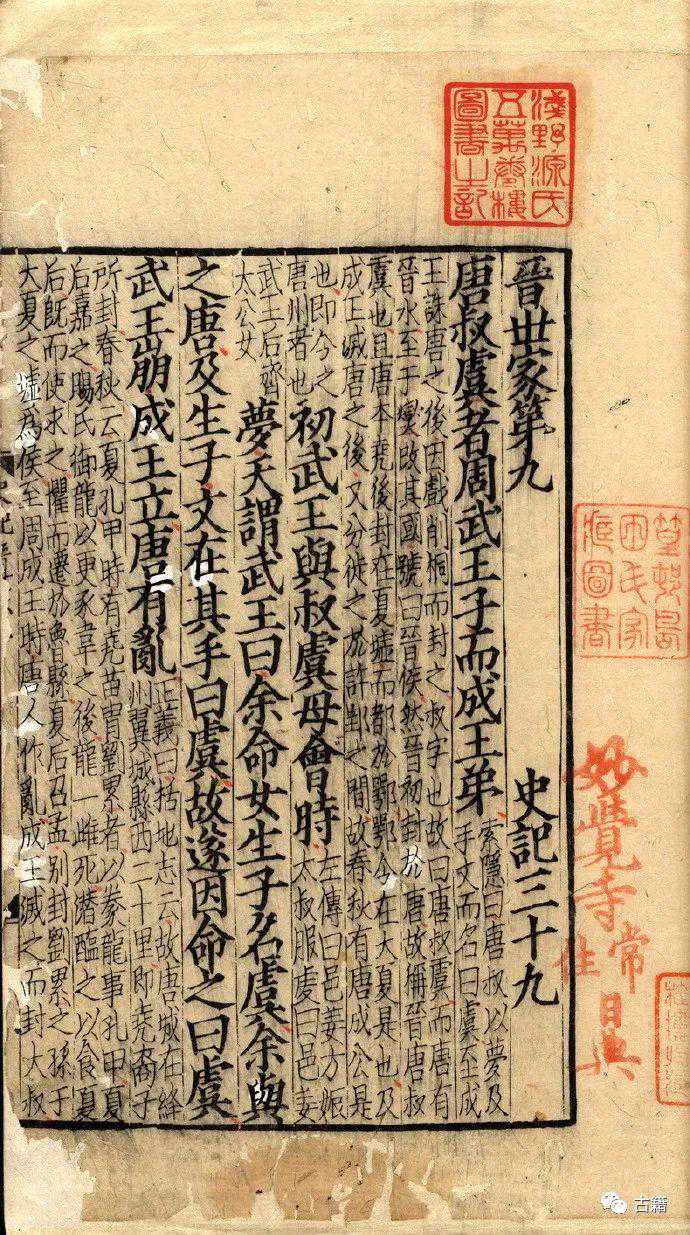 淺野源氏
五萬卷樓
圖書之記
篁邨島
田氏家
藏圖書
妙覺寺
常住
日典
晉世家第九 史記三十九
唐叔虞者周武王子而成王弟
索隱曰唐叔以夢及
手文而名曰虞至成
王誅唐之後因戲削桐而封之叔字也故曰唐叔虞而唐有
晉水至于燮改其國號曰晉侯然晉初封於唐故稱晉唐叔
虞也且唐本堯後封在夏墟而都於鄂鄂今在大夏是也及
成王滅唐之後又分徙之於許郢之間故春秋有唐成公是
也即今之
唐州者也
初武王與叔虞母會時
左傳曰邑姜方娠
太叔服虔曰邑姜
武王后齊
太公女
夢天謂武王曰余命女生子名虞余與
之唐及生子文在其手曰虞故遂因命之曰虞
武王崩成王立唐有亂
正義曰括地志云故唐城在絳
州翼城縣西二十里即堯裔子
所封春秋云夏孔甲時有堯苗胄劉累者以豢龍事孔甲夏
后嘉之賜氏御龍以更豕韋之後龍一雌死潛醢之以食夏
后既而使求之懼而遷於魯縣夏后召孟別封劉累之孫于
大夏之墟為侯至周成王時唐人作亂成王滅之而封太叔
古籍